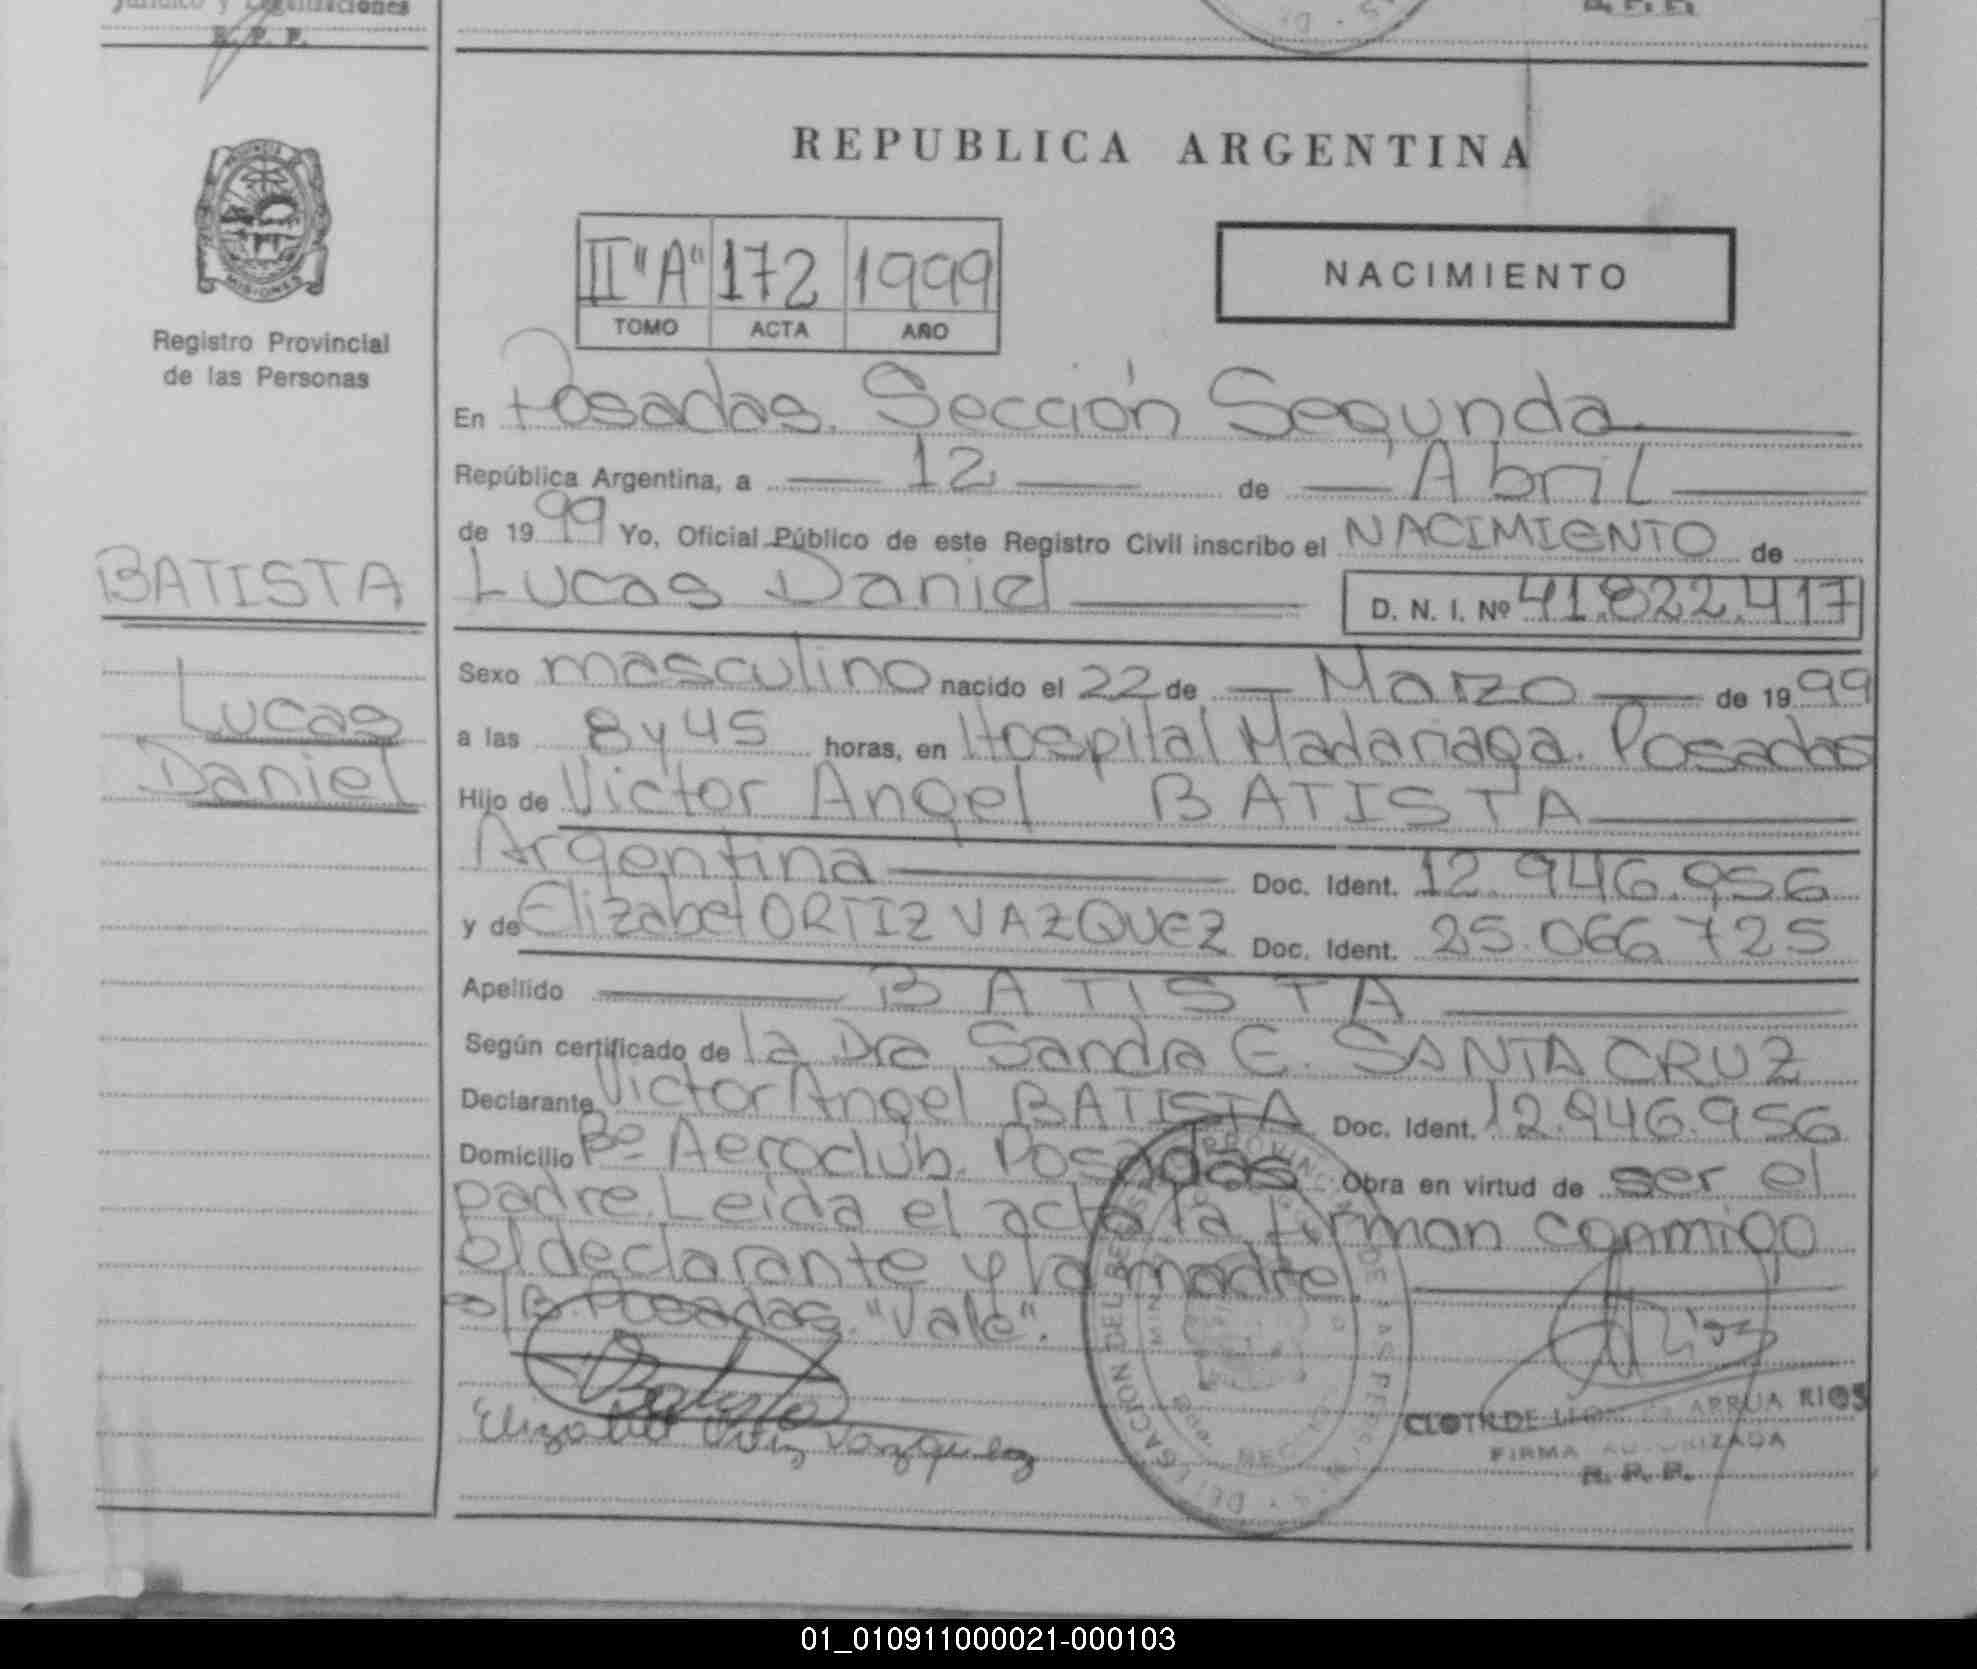 Jurídico y Legalizaciones
R. P. P.
R. P. P.
PROVINCIA DE
MISIONES
Registro Provincial
de las Personas
BATISTA
Lucas
Daniel
REPUBLICA ARGENTINA
II "A" 172 1999
TOMO ACTA AÑO
NACIMIENTO
En Posadas. Sección Segunda
República Argentina, a 12 de Abril
de 1999 Yo, Oficial Público de este Registro Civil inscribo el NACIMIENTO de
Lucas Daniel D. N. I. Nº 41.822.417
Sexo masculino nacido el 22 de Marzo de 1999
a las 8 y 45 horas, en Hospital Madariaga. Posadas
Hijo de Victor Angel BATISTA
Argentina Doc. Ident. 12.946.956
y de Elizabet ORTIZ VAZQUEZ Doc. Ident. 25.066.725
Apellido BATISTA
Según certificado de la Dra Sandra E. SANTA CRUZ
Declarante Victor Angel BATISTA Doc. Ident. 12.946.956
Domicilio Bº Aeroclub. Posadas Obra en virtud de ser el
padre. Leida el acta la firman conmigo
el declarante y la madre.
s/B. Posadas. "Vale".
Batista
Elizabet Ortiz Vazquez
DELEGACION DEL REGISTRO PROVINCIAL DE LAS PERSONAS
CLOTILDE ARRUA RIOS
FIRMA AUTORIZADA
R. P. P.
01_010911000021-000103